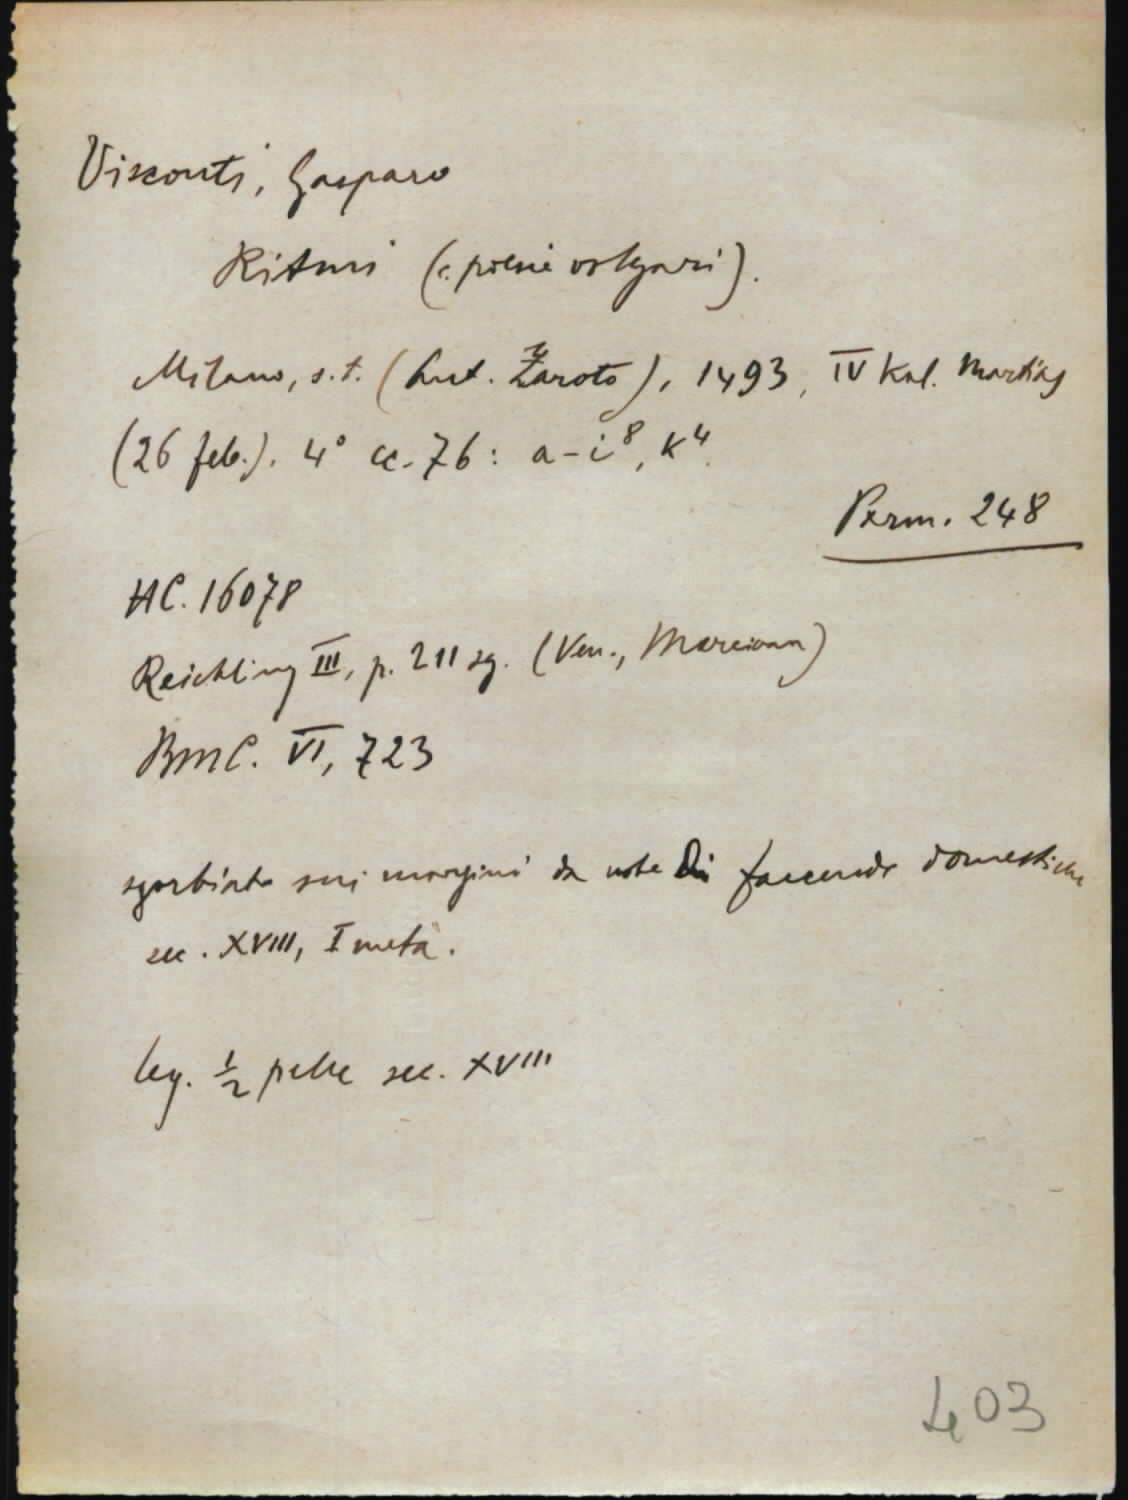 Visconti, Gasparo
Ritmi (c. poesie volgari).
Milano, s.t. (Ant. Zaroto), 1493, IV Kal. Martias
(26 feb.). 4° cc. 76: a-i⁸, K⁴.
Perm. 248
HC. 16078
Reichling III, p. 211 sg. (Ven., Marciana)
BMC. VI, 723
sgorbiato sui margini da note di faccende domestiche
sec. XVIII, I metà.
leg. ½ pelle sec. XVIII
403